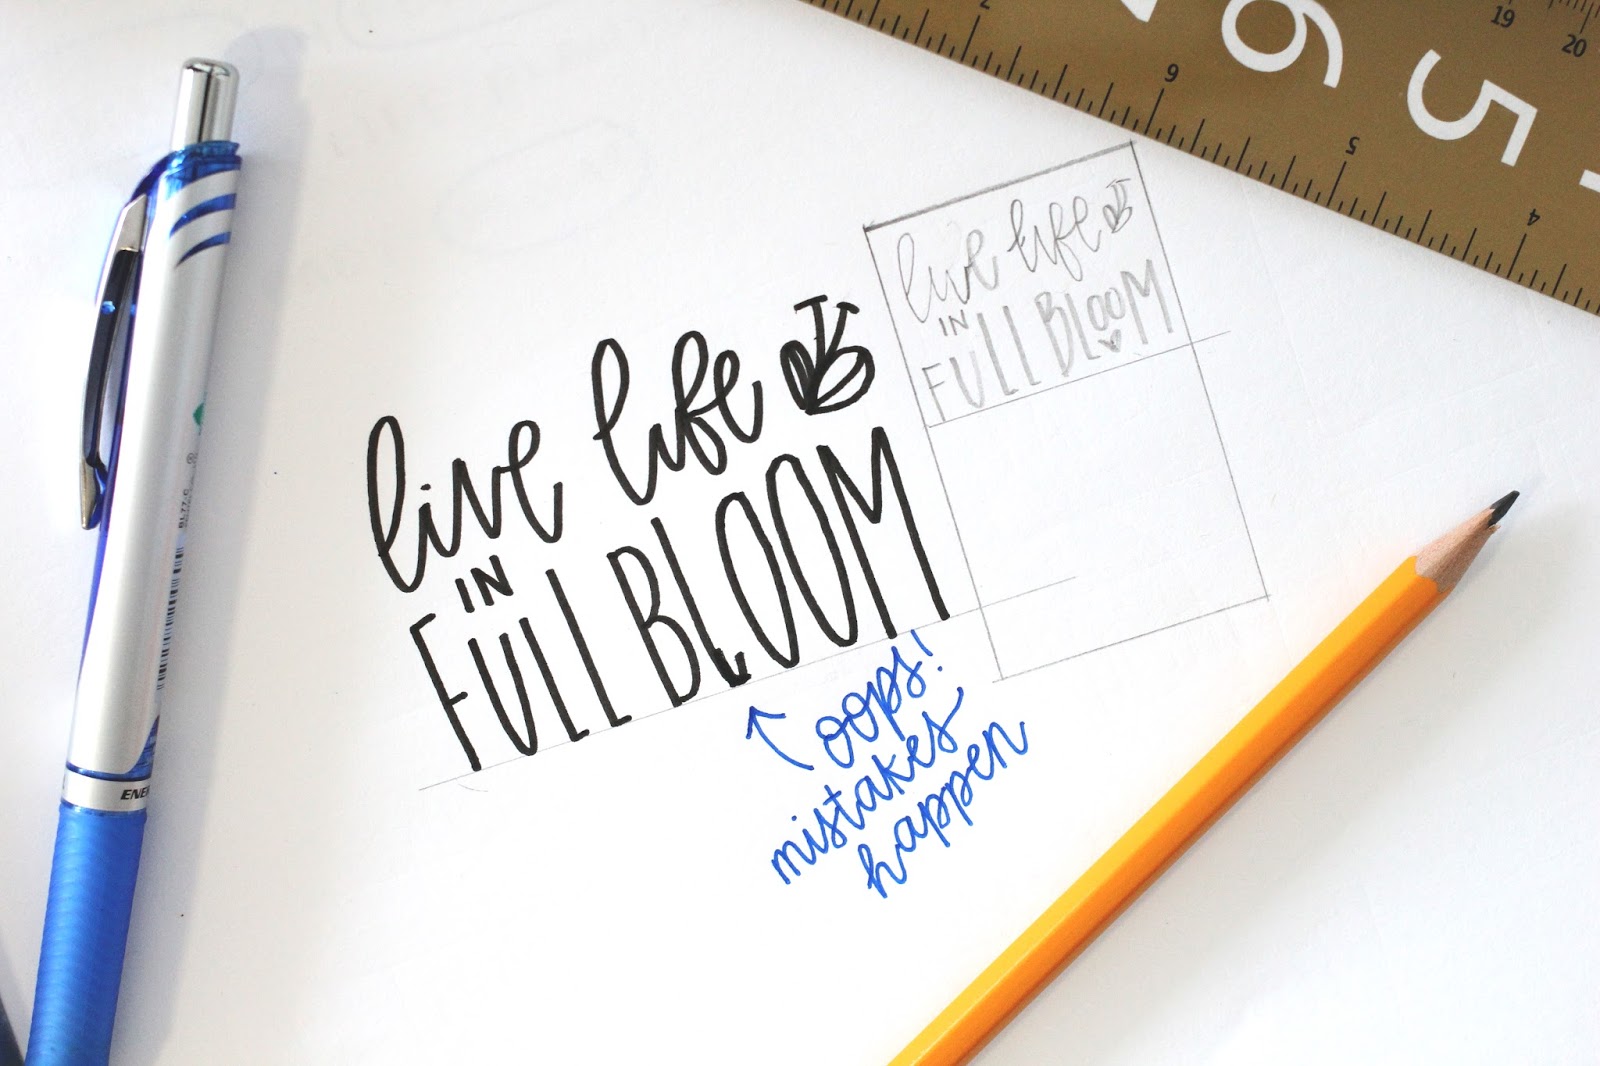 live life
IN
FULL BLOOM
oops!
mistakes
happen
live life
IN
FULL BLOOM
6 5
19
20
6
5
4
BL77-C
ENER